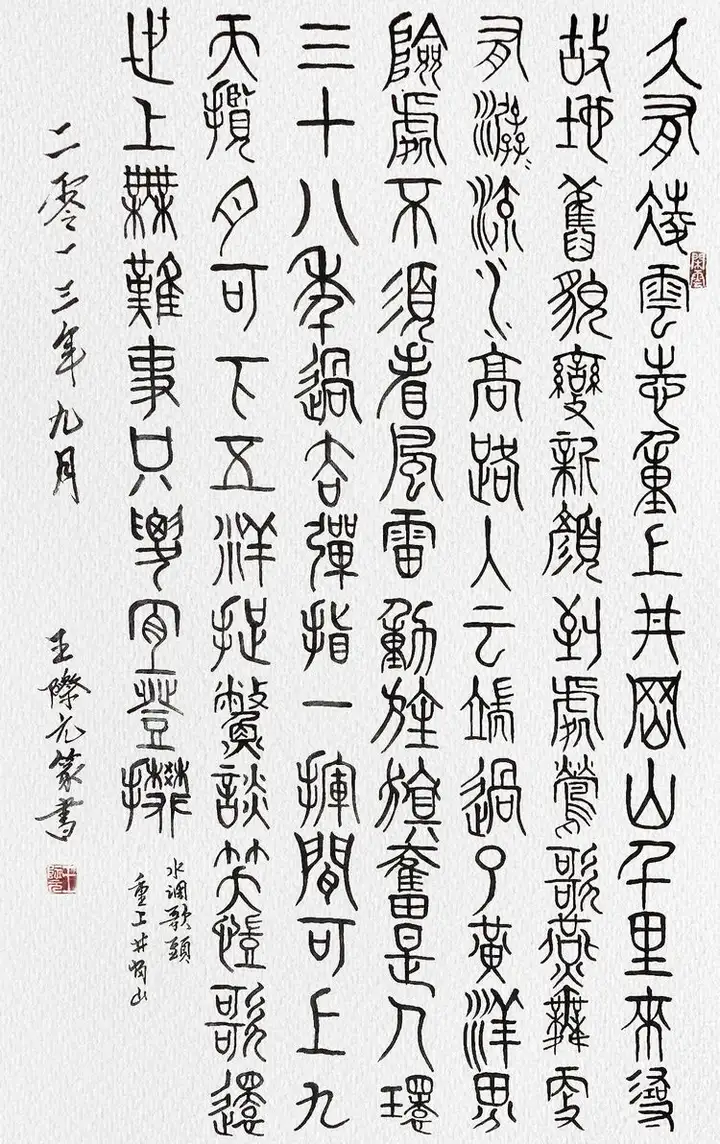 久有凌雲志重上井岡山千里來尋
故地舊貌變新顏到處鶯歌燕舞更
有潺〻流水高路入云端過了黃洋界
險處不須看風雷動旌旗奮是人寰
三十八年過去彈指一揮間可上九
天攬月可下五洋捉鱉談笑凱歌還
世上無難事只要肯登攀
水调歌頭
重上井岡山
二零一三年九月
王際元篆書